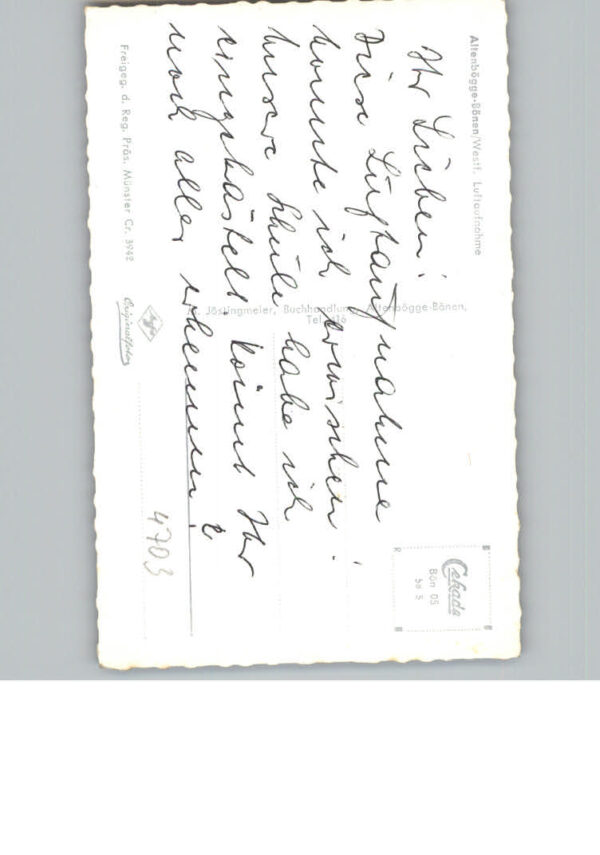 Altenbögge-Bönen/Westf. Luftaufnahme
Ihr Lieben!
Diese Luftaufnahme
konnte ich erwischen!
Unsere Schule habe ich
eingekästelt. Könnt Ihr
noch alles erkennen?
Jöstingmeier, Buchhandlung, Altenbögge-Bönen,
Tel. 416
Freigeg. d. Reg. Präs. Münster Cr. 3942
Agfa
Originalfoto
Cekade
Bön 05
bd 5
4703